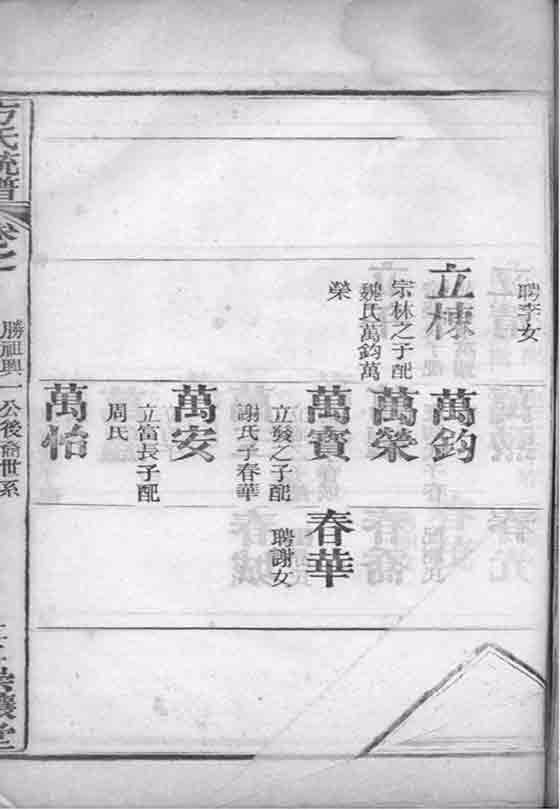 聘李女
立棟
宗林之子配
魏氏萬鈞萬
榮
萬鈞
萬榮
萬寶
立發之子配
謝氏子春華
萬安
立富長子配
周氏
萬怡
春華
聘謝女
方氏統譜
卷之
勝祖興一公後裔世系